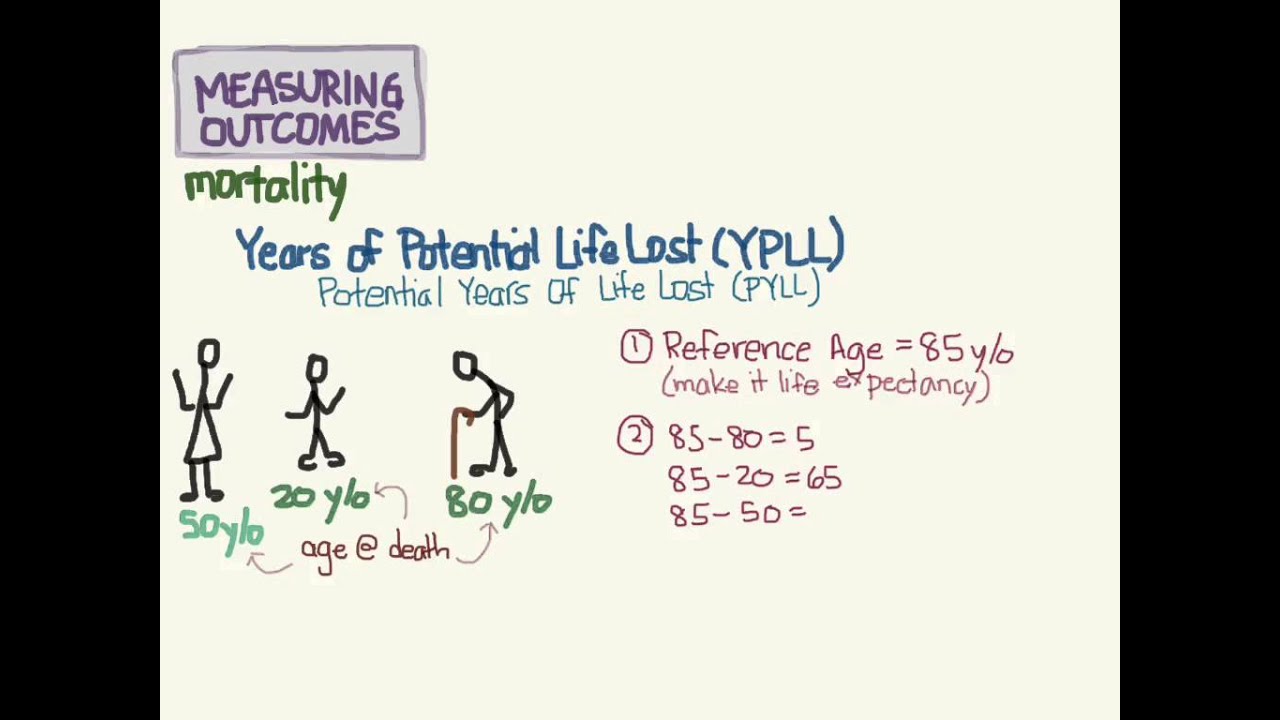 MEASURING
OUTCOMES
mortality
Years of Potential Life Lost (YPLL)
Potential Years Of Life Lost (PYLL)
50 y/o
20 y/o
80 y/o
age @ death
① Reference Age = 85 y/o
(make it life expectancy)
② 85 - 80 = 5
85 - 20 = 65
85 - 50 =